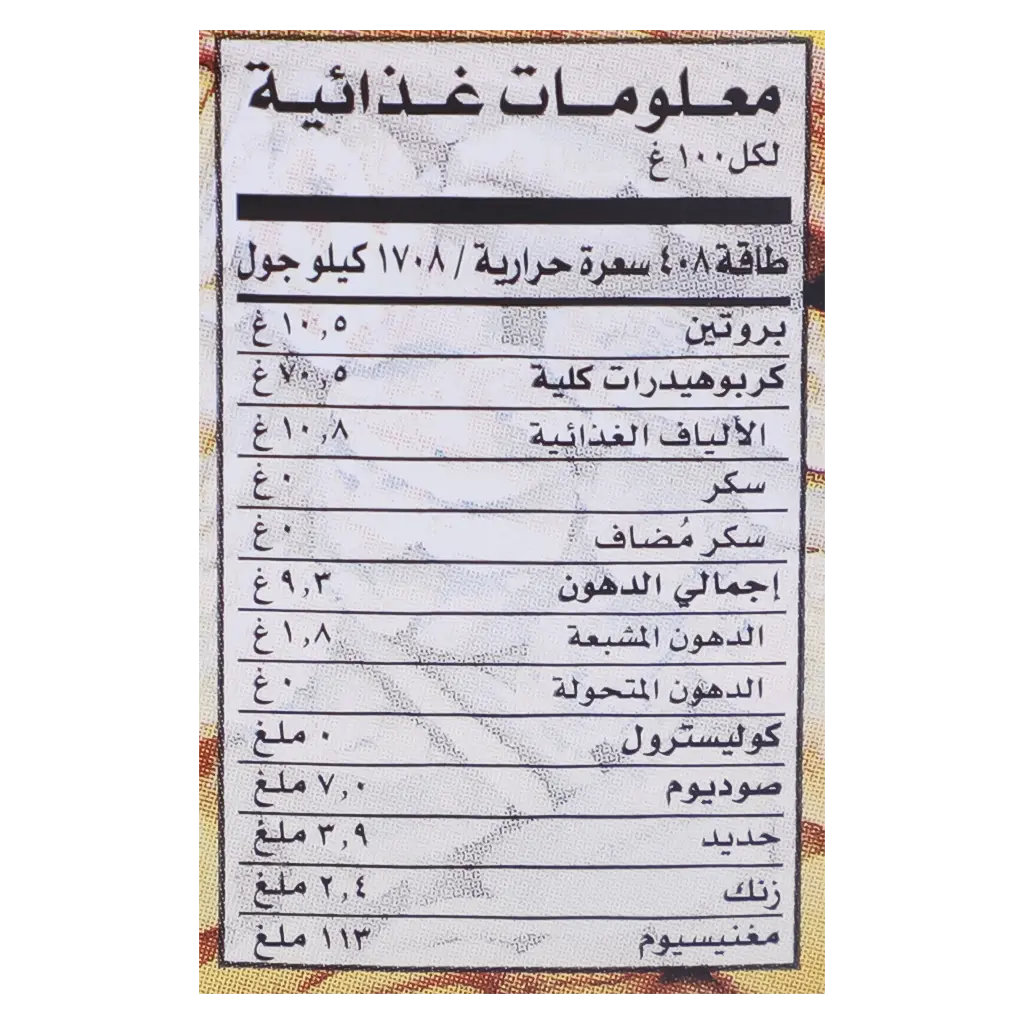 معلومات غذائية
لكل ١٠٠ غ
طاقة ٤٠٨ سعرة حرارية / ١٧٠٨ كيلو جول
بروتين ١٠,٥ غ
كربوهيدرات كلية ٧٠,٥ غ
الألياف الغذائية ١٠,٨ غ
سكر ٠ غ
سكر مُضاف ٠ غ
إجمالي الدهون ٩,٣ غ
الدهون المشبعة ١,٨ غ
الدهون المتحولة ٠ غ
كوليسترول ٠ ملغ
صوديوم ٧,٠ ملغ
حديد ٣,٩ ملغ
زنك ٢,٤ ملغ
مغنيسيوم ١١٣ ملغ